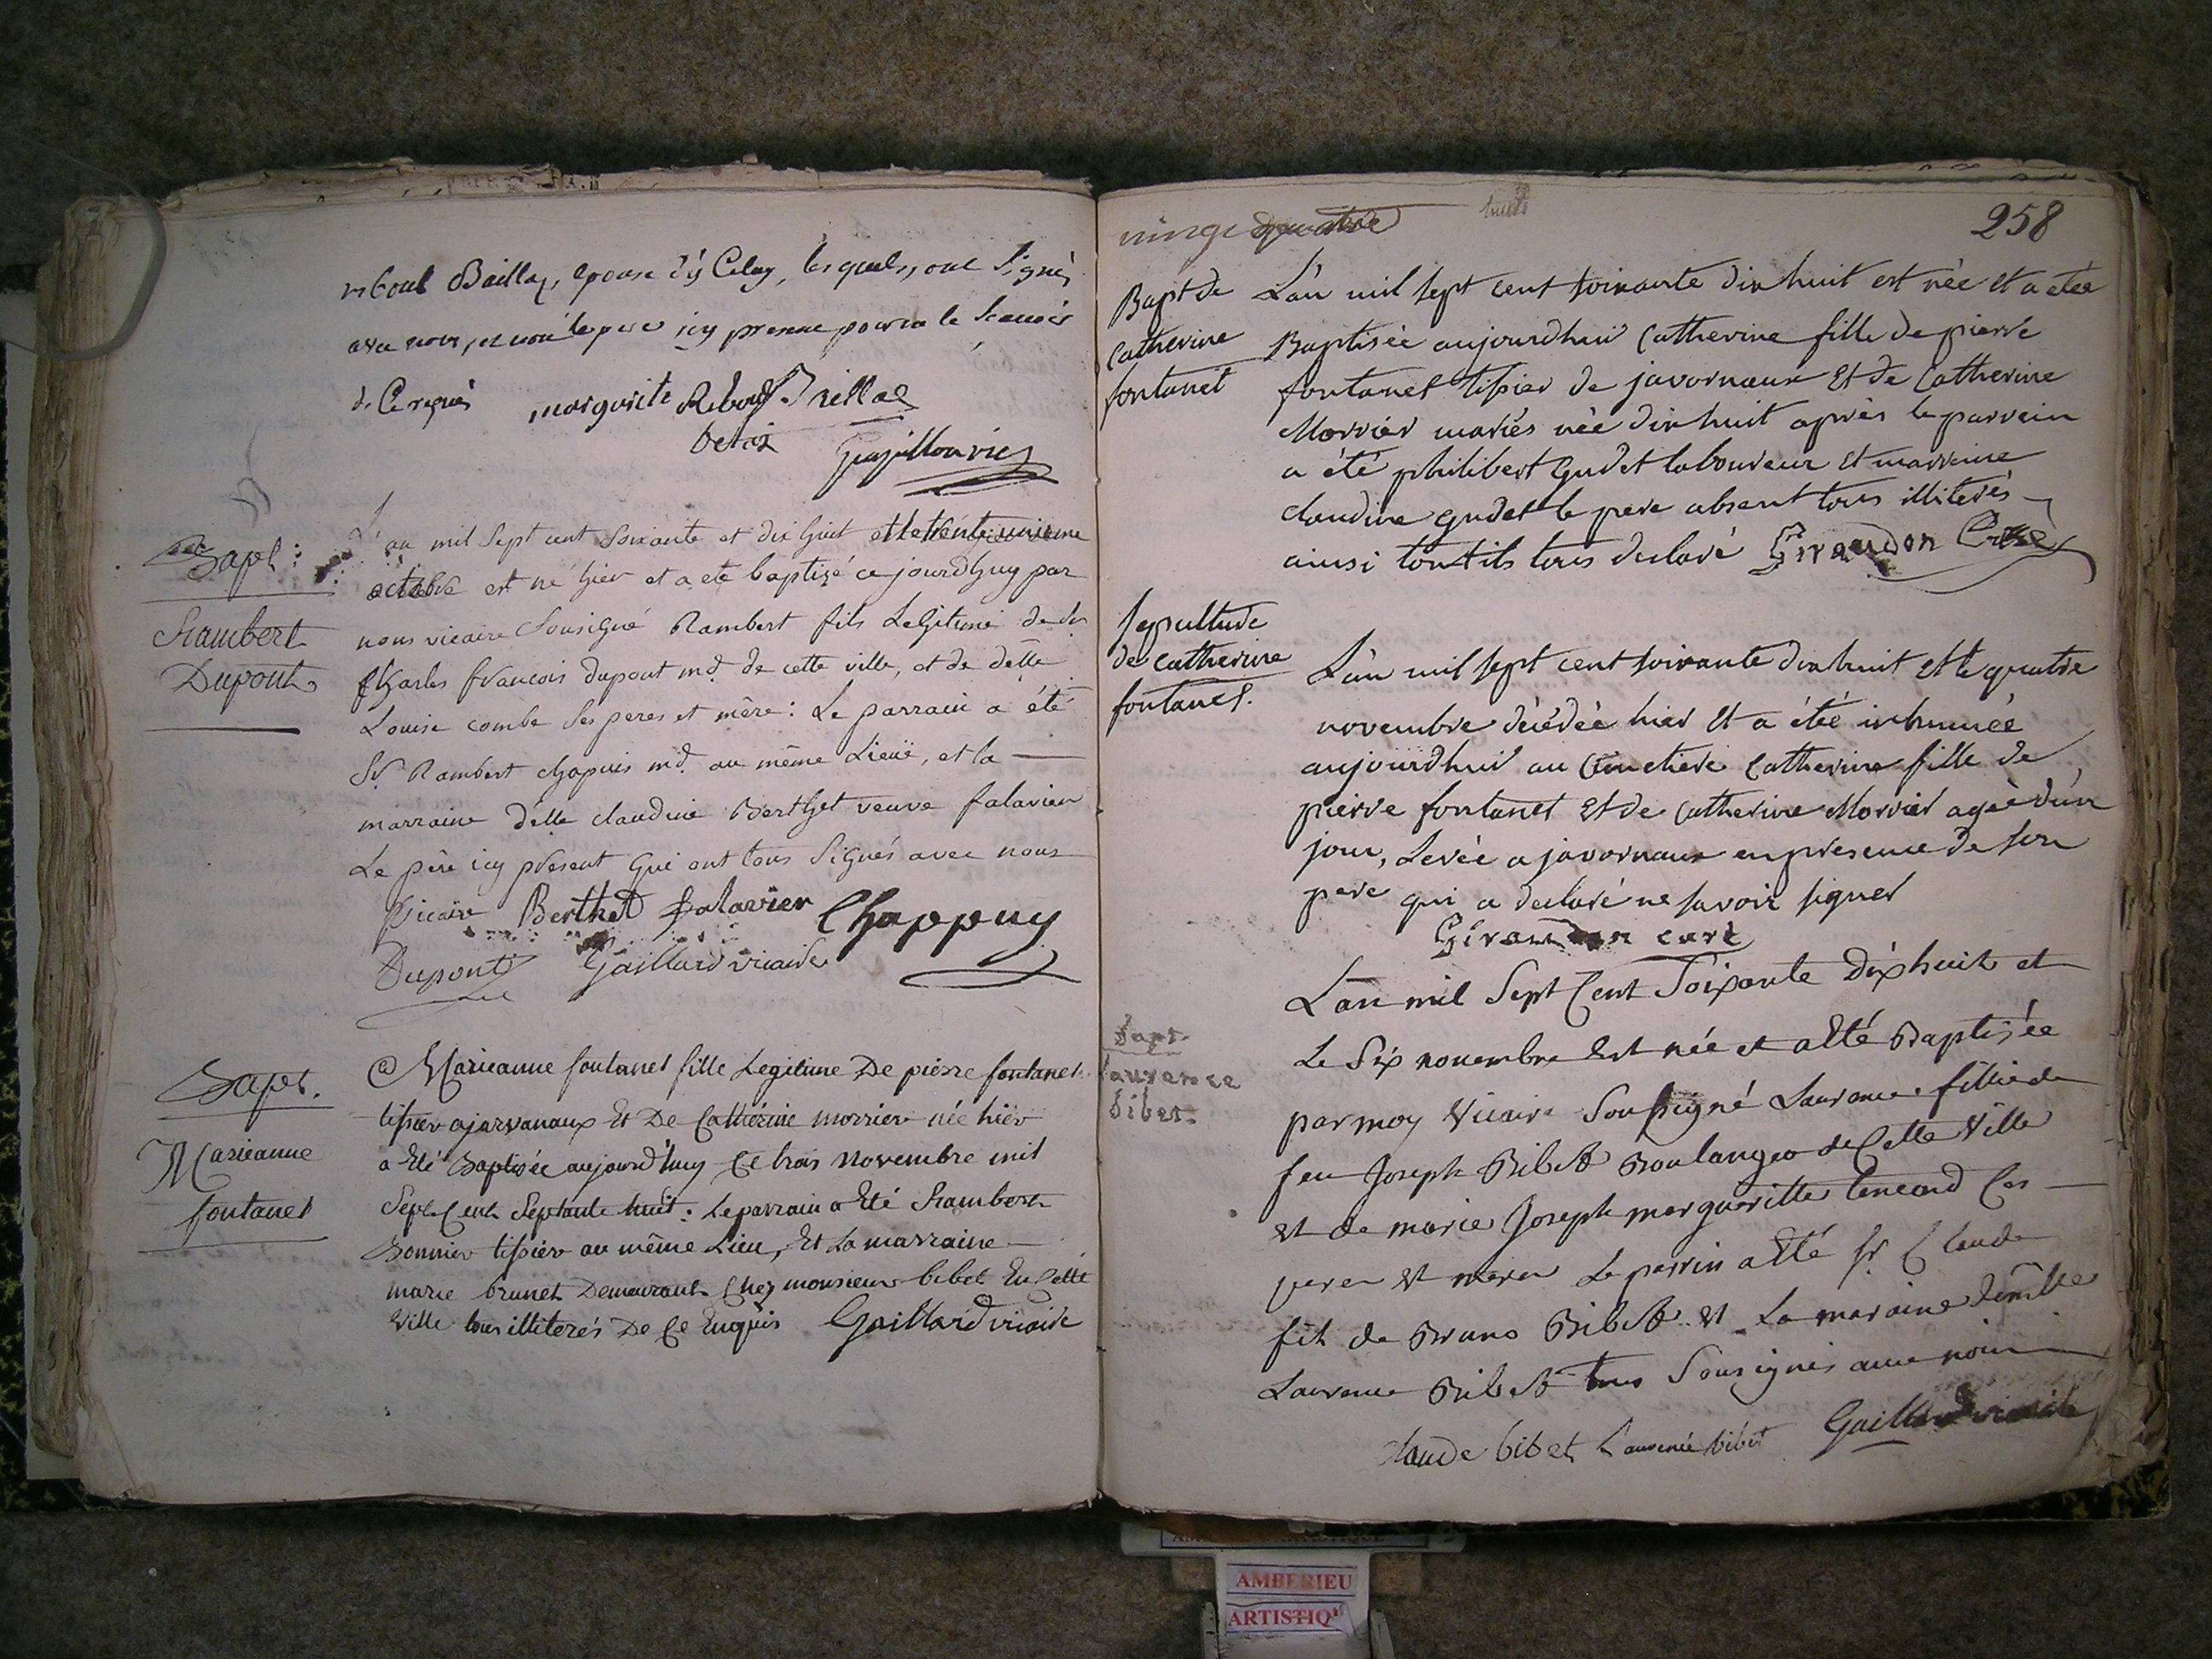 reboul Baillaz, epouse du Celuy, lesquels, ont signés
avec nous, et non le pere icy present pour ne le scavoir
de Ce requis marguerite Reboul Baillaz
vicaire
Bapt:
Rambert
Dupont
L'an mil sept cent soixante et dix huit et le trente unieme
octobre est né hier et a ete baptizé ce jourdhuy par
nous vicaire sousigné Rambert fils Legitime de Sr
Charles francois dupont md. de cette ville, et de delle
Louise combe ses peres et mère: Le parrain a été
Sr. Rambert chapuis md. au même Lieuë, et la
marraine delle claudine Berthet veuve falavier
Le père icy présent qui ont tous signés avec nous
vicaire Berthet falavier Chappuy
Dupont Gaillard vicaire
Bapt.
Marieanne
fontanet
Marieanne fontanet fille Legitime De pierre fontanet
tissier a jarvanaux Et De Catherine morrier née hier
a Eté Baptisée aujourd'huy Ce trois novembre mil
Sept Cent Septante huit: Le parrain a Eté Rambert
Bonnier tissier au même Lieu, Et La marraine
marie brunet Demeurant Chez monsieur bibet En Cette
Ville tous illiterés De Ce Enquis Gaillard vicaire
huit
258
vingt quatre
Bapt de
catherine
fontanet
L'an mil sept cent soixante dix huit est née et a etée
Baptisée aujourdhui Catherine fille de pierre
fontanet tissier de javornaux et de Catherine
Morrier mariés née dix huit après le parrein
a été philibert Gudet laboureur et marreine
claudine gudet le pere absent tous illiterés
ainsi tout ils tous declaré Giraudon Curé
Sepulture
de catherine
fontanet.
L'an mil sept cent soixante dix huit et le quatre
novembre décédée hier et a étée inhumée
aujourdhui au Cimetiere Catherine fille de
pierre fontanet et de Catherine Morrier agée d'un
jour, Levée a javornaux en presence de son
pere qui a declaré ne savoir signer
Giraudon curé
Bapt.
Laurence
bibet.
L'an mil Sept Cent Soixante Dix huit et
Le Six novembre Est née et a Eté Baptisée
par moy Vicaire Soussigné Laurence fille de
feu Joseph Bibet Boulanger de Cette Ville
et de marie Joseph margueritte tencard Ces
peres et meres Le parrin a Eté Sr Claude
fils de Bruno Bibet et La maraine demlle
Laurence Bibet tous Sousignés avec nous
Claude bibet Laurence bibet Gaillard vicaire
AMBERIEU
ARTISTIQ